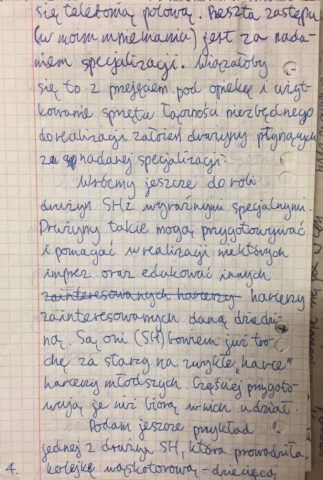 się telefonią polową. Reszta zastępu
(w moim mniemaniu) jest za nada-
niem specjalizacji. Wiązałoby
się to z przejęciem pod opiekę i użyt-
kowanie sprzętu łączności niezbędnego
do realizacji założeń drużyny płynących
za nadanej specjalizacji.
Wróćmy jeszcze do roli
drużyn SHz wyraźnymi specjalnymi.
Drużyny takie mogą przygotowywać
i pomagać w realizacji niektórych
imprez oraz edukować innych
zainteresowanych harcerzy harcerzy
zainteresowanych daną dziedzi-
ną. Są oni (SH) bowiem już tro-
chę za starzy na zwykłe "harce"
harcerzy młodszych. Częściej przygoto-
wują je niż biorą w nich udział.
Podam jeszcze przykład
jednej z drużyn SH, która prowadziła
4. kolejkę wąskotorową - dziecięcą